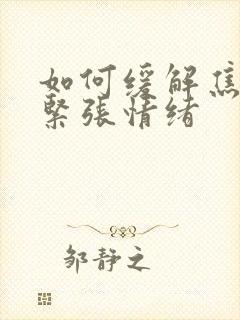 如何缓解焦
緊張情绪
邹静之